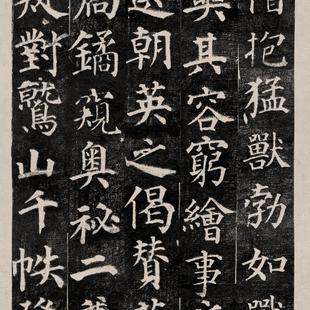 抱猛獸勃如
其容窮繪事
朝英之偈贊
鐍窺奧祕二
對鷲山千帙